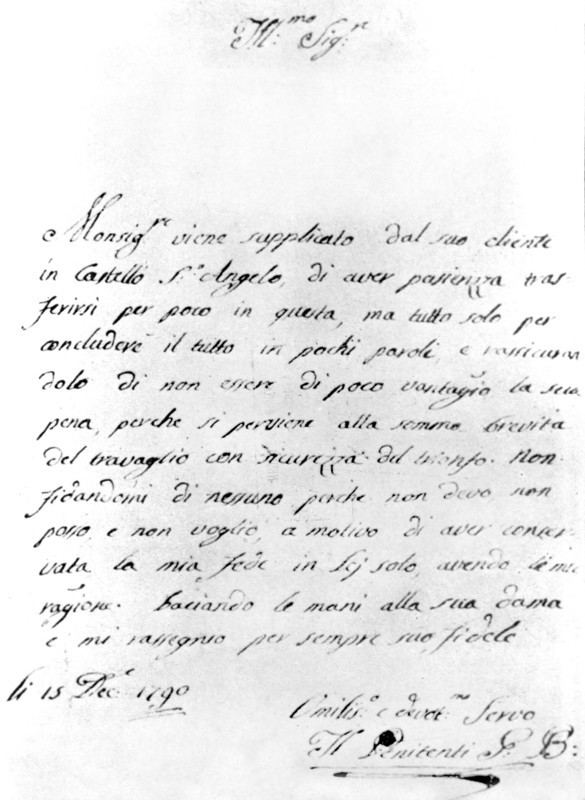 Ill:mo Sig:re
Monsig:re viene supplicato dal suo cliente
in Castello S:o Angelo, di aver pasienzza tras-
ferirsi per poco in questa, ma tutto solo per
concludere il tutto in pochi paroli, e rassicuran
dolo di non essere di poco vantagio la sua
pena, perche si perviene alla somma brevita
del travaglio con sicurezza del trionfo. Non
fidandomi di nessuno perche non devo non
posso, e non voglio, a motivo di aver conser-
vata la mia fede in Lej solo, avendo le mie
ragione. Baciando le mani alla sua dama
e mi rassegnio per sempre suo fidele
li 15 Dec:e 1790
Omilis:o e devot:mo Servo
Il Penitenti G: B: